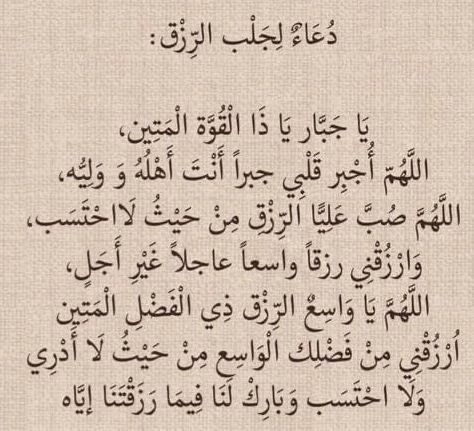 دُعَاءٌ لِجَلْب الرِّزْق:
يَا جَبَّار يَا ذَا الْقُوَّة الْمَتِين،
اللَّهُمّ أُجْبِر قَلْبِي جبراً أَنْتَ أَهْلُهُ وَ وَلِيُّه،
اللَّهُمَّ صُبَّ عَلِيَّا الرِّزْقِ مِنْ حَيْثُ لَااحْتَسَب،
وَارْزُقْنِي رزقاً واسعاً عاجلاً غَيْرِ أَجَلٍ،
اللَّهُمَّ يَا وَاسِعُ الرِّزْق ذِي الْفَضْلِ الْمَتِين
اُرْزُقْنِي مِنْ فَضْلِك الْوَاسِعِ مِنْ حَيْثُ لَا أَدْرِي
وَلَا احْتَسَب وَبَارِكْ لَنَا فِيمَا رَزَقْتَنَا إيَّاه